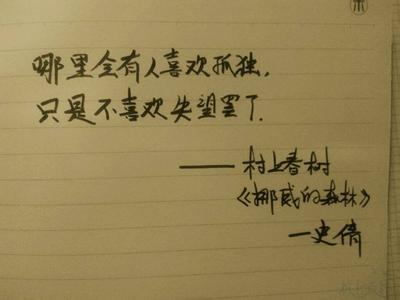 哪里会有人喜欢孤独.
只是不喜欢失望罢了.
——村上春树
《挪威的森林》
一史倩